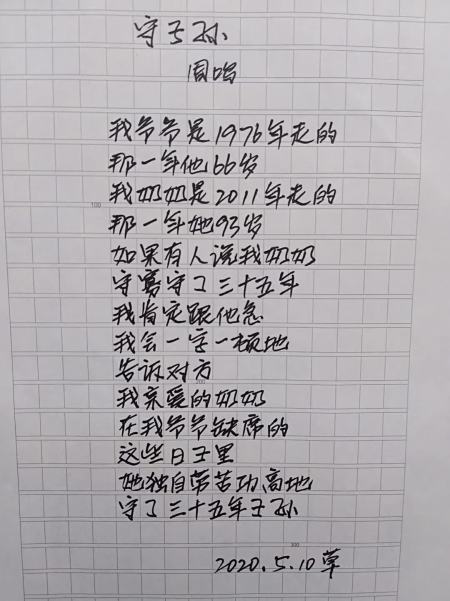 守子孙
周鸣
我爷爷是1976年走的
那一年他66岁
我奶奶是2011年走的
那一年她93岁
如果有人说我奶奶
守寡守了三十五年
我肯定跟他急
我会一字一顿地
告诉对方
我亲爱的奶奶
在我爷爷缺席的
100
这些日子里
她独自劳苦功高地
守了三十五年子孙
300
2020.5.10草